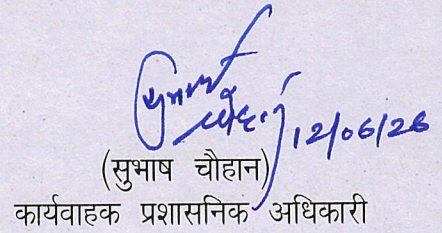 सुभाष चौहान 12/06/26
(सुभाष चौहान)
कार्यवाहक प्रशासनिक अधिकारी